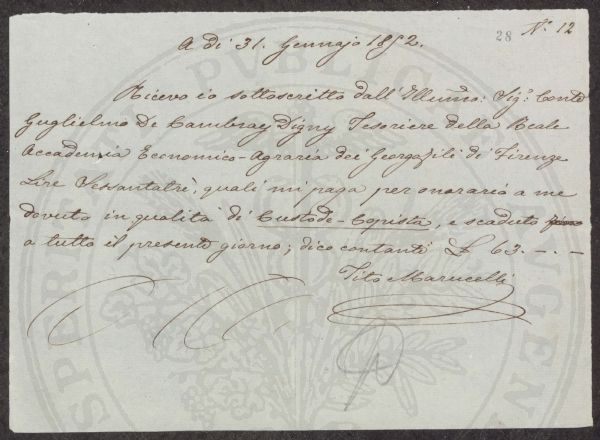 28 N.º 12
A dì 31. Gennajo 1852.
Ricevo io sottoscritto dall'Illmo: Sig.º Conte
Guglielmo De Cambray Digny Tesoriere della Reale
Accademia Economico-Agraria dei Georgofili di Firenze
Lire Sessantatrè, quali mi paga per onorario a me
dovuto in qualità di Custode-Copista, e scaduto
a tutto il presente giorno; dico contanti £ 63. –. –
Tito Marucelli
PVBLICAE
PROSPERITATIS AVGENDAE